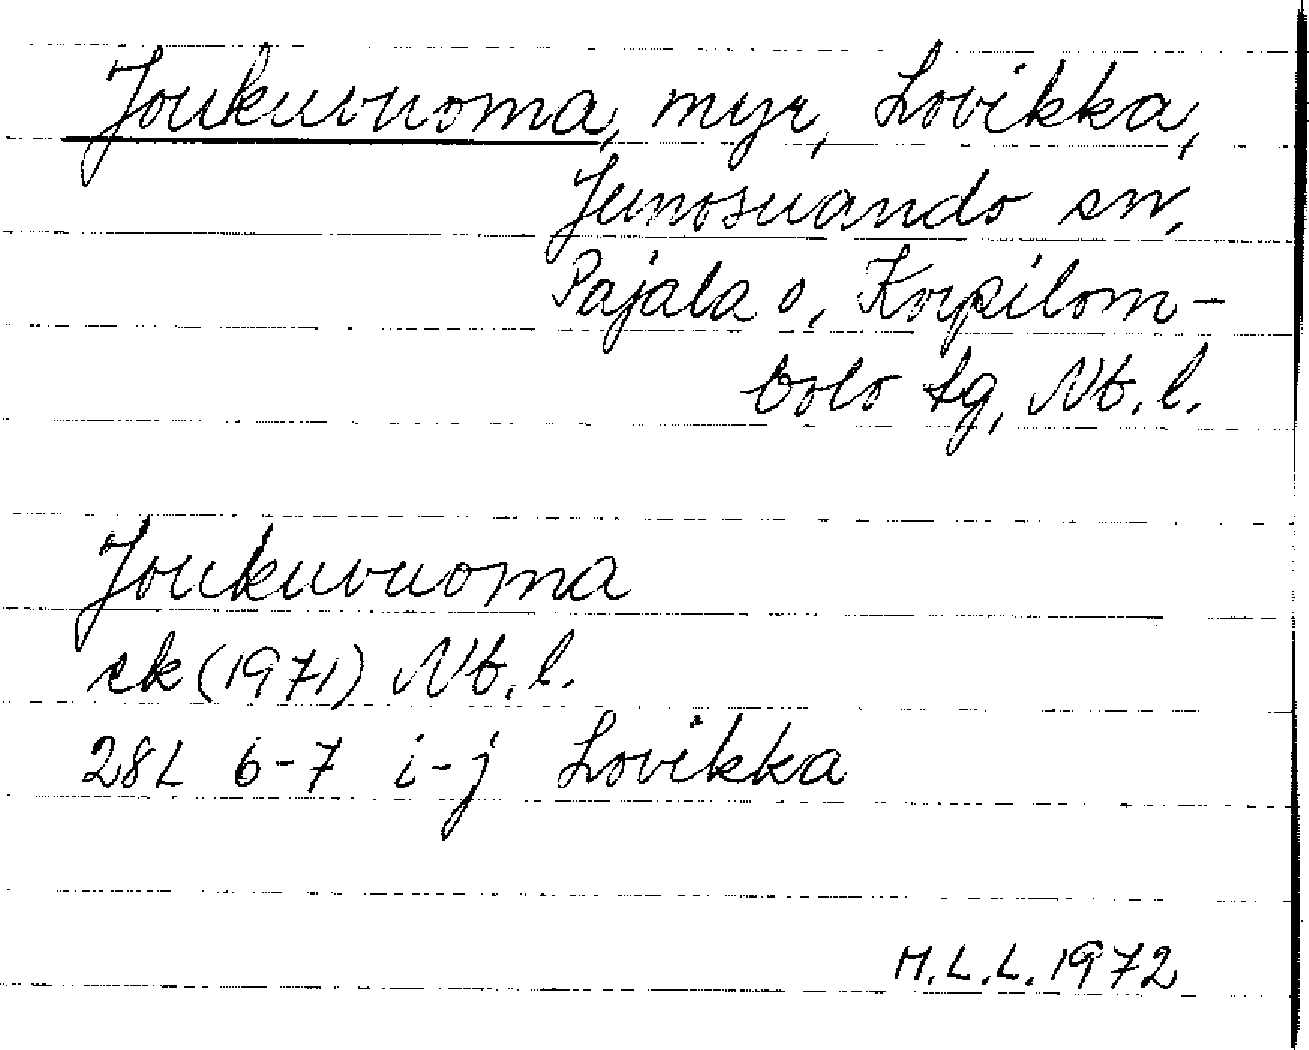 Joukuvuoma, myr, Lovikka,
Junosuando sn,
Pajala s, Korpilom-
bolo tg, Nb. l.
Joukuvuoma
ek (1971) Nb. l.
28L 6-7 i-j Lovikka
M.L.L. 1972